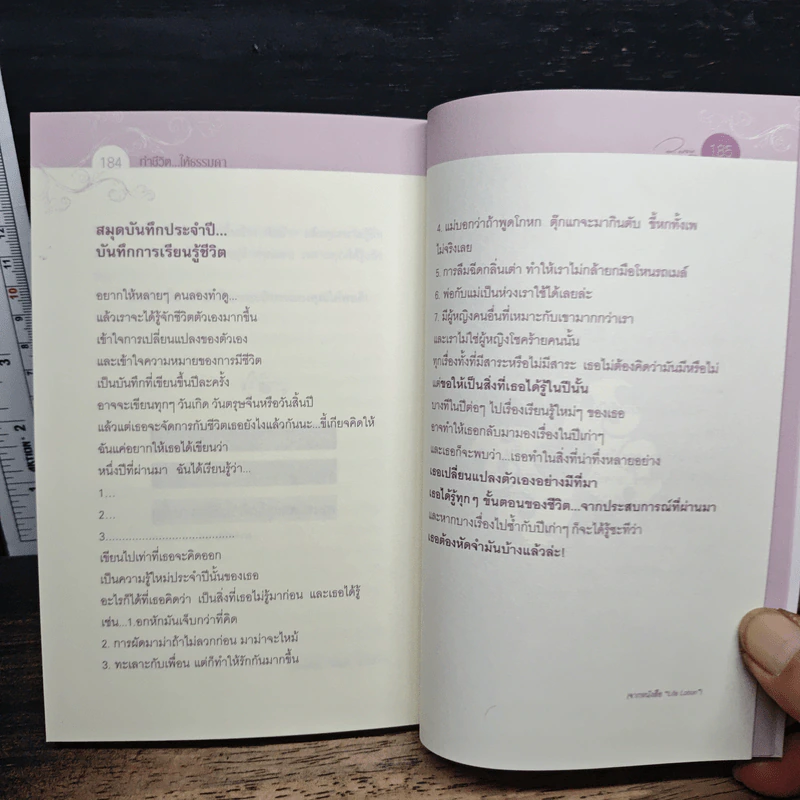 184 ทำชีวิต...ให้ธรรมดา
สมุดบันทึกประจำปี...
บันทึกการเรียนรู้ชีวิต
อยากให้หลายๆ คนลองทำดู...
แล้วเราจะได้รู้จักชีวิตตัวเองมากขึ้น
เข้าใจการเปลี่ยนแปลงของตัวเอง
และเข้าใจความหมายของการมีชีวิต
เป็นบันทึกที่เขียนขึ้นปีละครั้ง
อาจจะเขียนทุกๆ วันเกิด วันตรุษจีนหรือวันสิ้นปี
แล้วแต่เธอจะจัดการกับชีวิตเธอยังไงแล้วกันนะ...ขี้เกียจคิดให้
ฉันแค่อยากให้เธอได้เขียนว่า
หนึ่งปีที่ผ่านมา ฉันได้เรียนรู้ว่า...
1...
2...
3......................................
เขียนไปเท่าที่เธอจะคิดออก
เป็นความรู้ใหม่ประจำปีนั้นของเธอ
อะไรก็ได้ที่เธอคิดว่า เป็นสิ่งที่เธอไม่รู้มาก่อน และเธอได้รู้
เช่น...1.อกหักมันเจ็บกว่าที่คิด
2. การผัดมาม่าถ้าไม่ลวกก่อน มาม่าจะไหม้
3. ทะเลาะกับเพื่อน แต่ก็ทำให้รักกันมากขึ้น
185
4. แม่บอกว่าถ้าพูดโกหก ตุ๊กแกจะมากินตับ ขี้หกทั้งเพ
ไม่จริงเลย
5. การลืมฉีดกลิ่นเต่า ทำให้เราไม่กล้ายกมือโหนรถเมล์
6. พ่อกับแม่เป็นห่วงเราใช้ได้เลยล่ะ
7. มีผู้หญิงคนอื่นที่เหมาะกับเขามากกว่าเรา
และเราไม่ใช่ผู้หญิงโชคร้ายคนนั้น
ทุกเรื่องทั้งที่มีสาระหรือไม่มีสาระ เธอไม่ต้องคิดว่ามันมีหรือไม่
แค่ขอให้เป็นสิ่งที่เธอได้รู้ในปีนั้น
บางทีในปีต่อๆ ไปเรื่องเรียนรู้ใหม่ๆ ของเธอ
อาจทำให้เธอกลับมามองเรื่องในปีเก่าๆ
และเธอก็จะพบว่า...เธอทำในสิ่งที่น่าทึ่งหลายอย่าง
เธอเปลี่ยนแปลงตัวเองอย่างมีที่มา
เธอได้รู้ทุกๆ ขั้นตอนของชีวิต...จากประสบการณ์ที่ผ่านมา
และหากบางเรื่องไปซ้ำกับปีเก่าๆ ก็จะได้รู้ซะทีว่า
เธอต้องหัดจำมันบ้างแล้วล่ะ!
(จากหนังสือ "Life Letter")